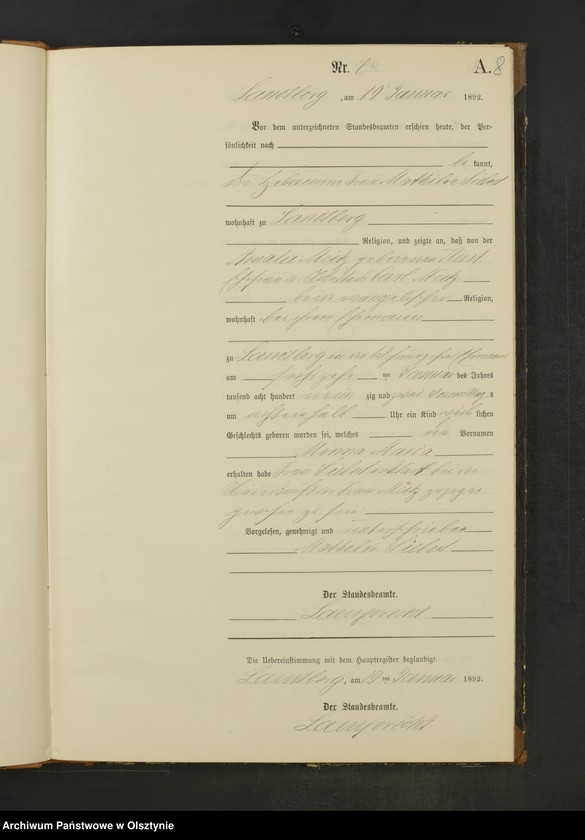 Nr. 7 A. 8
Landsberg, am 19 Januar 1892.
Vor dem unterzeichneten Standesbeamten erschien heute, der Per-
sönlichkeit nach
be kannt,
die Hebamme Frau Mathilde Siebert
wohnhaft zu Landsberg
Religion, und zeigte an, daß von der
Amalie geborenen
Ehefrau Carl
beide evangelischer Religion,
wohnhaft bei ihrem Ehemann
zu Landsberg in der Wohnung ihres Ehemannes
am ten Januar des Jahres
tausend acht hundert neun zig und zwei Vormittags
um Uhr ein Kind weib lichen
Geschlechts geboren worden sei, welches die Vornamen
Minna Maria
erhalten habe Frau Siebert bei der
Frau zugegen
gewesen zu sein.
Vorgelesen, genehmigt und unterschrieben
Mathilde Siebert
Der Standesbeamte.
Lamprecht
Die Uebereinstimmung mit dem Hauptregister beglaubigt.
Landsberg, am 19 ten Januar 1892.
Der Standesbeamte.
Lamprecht
Archiwum Państwowe w Olsztynie